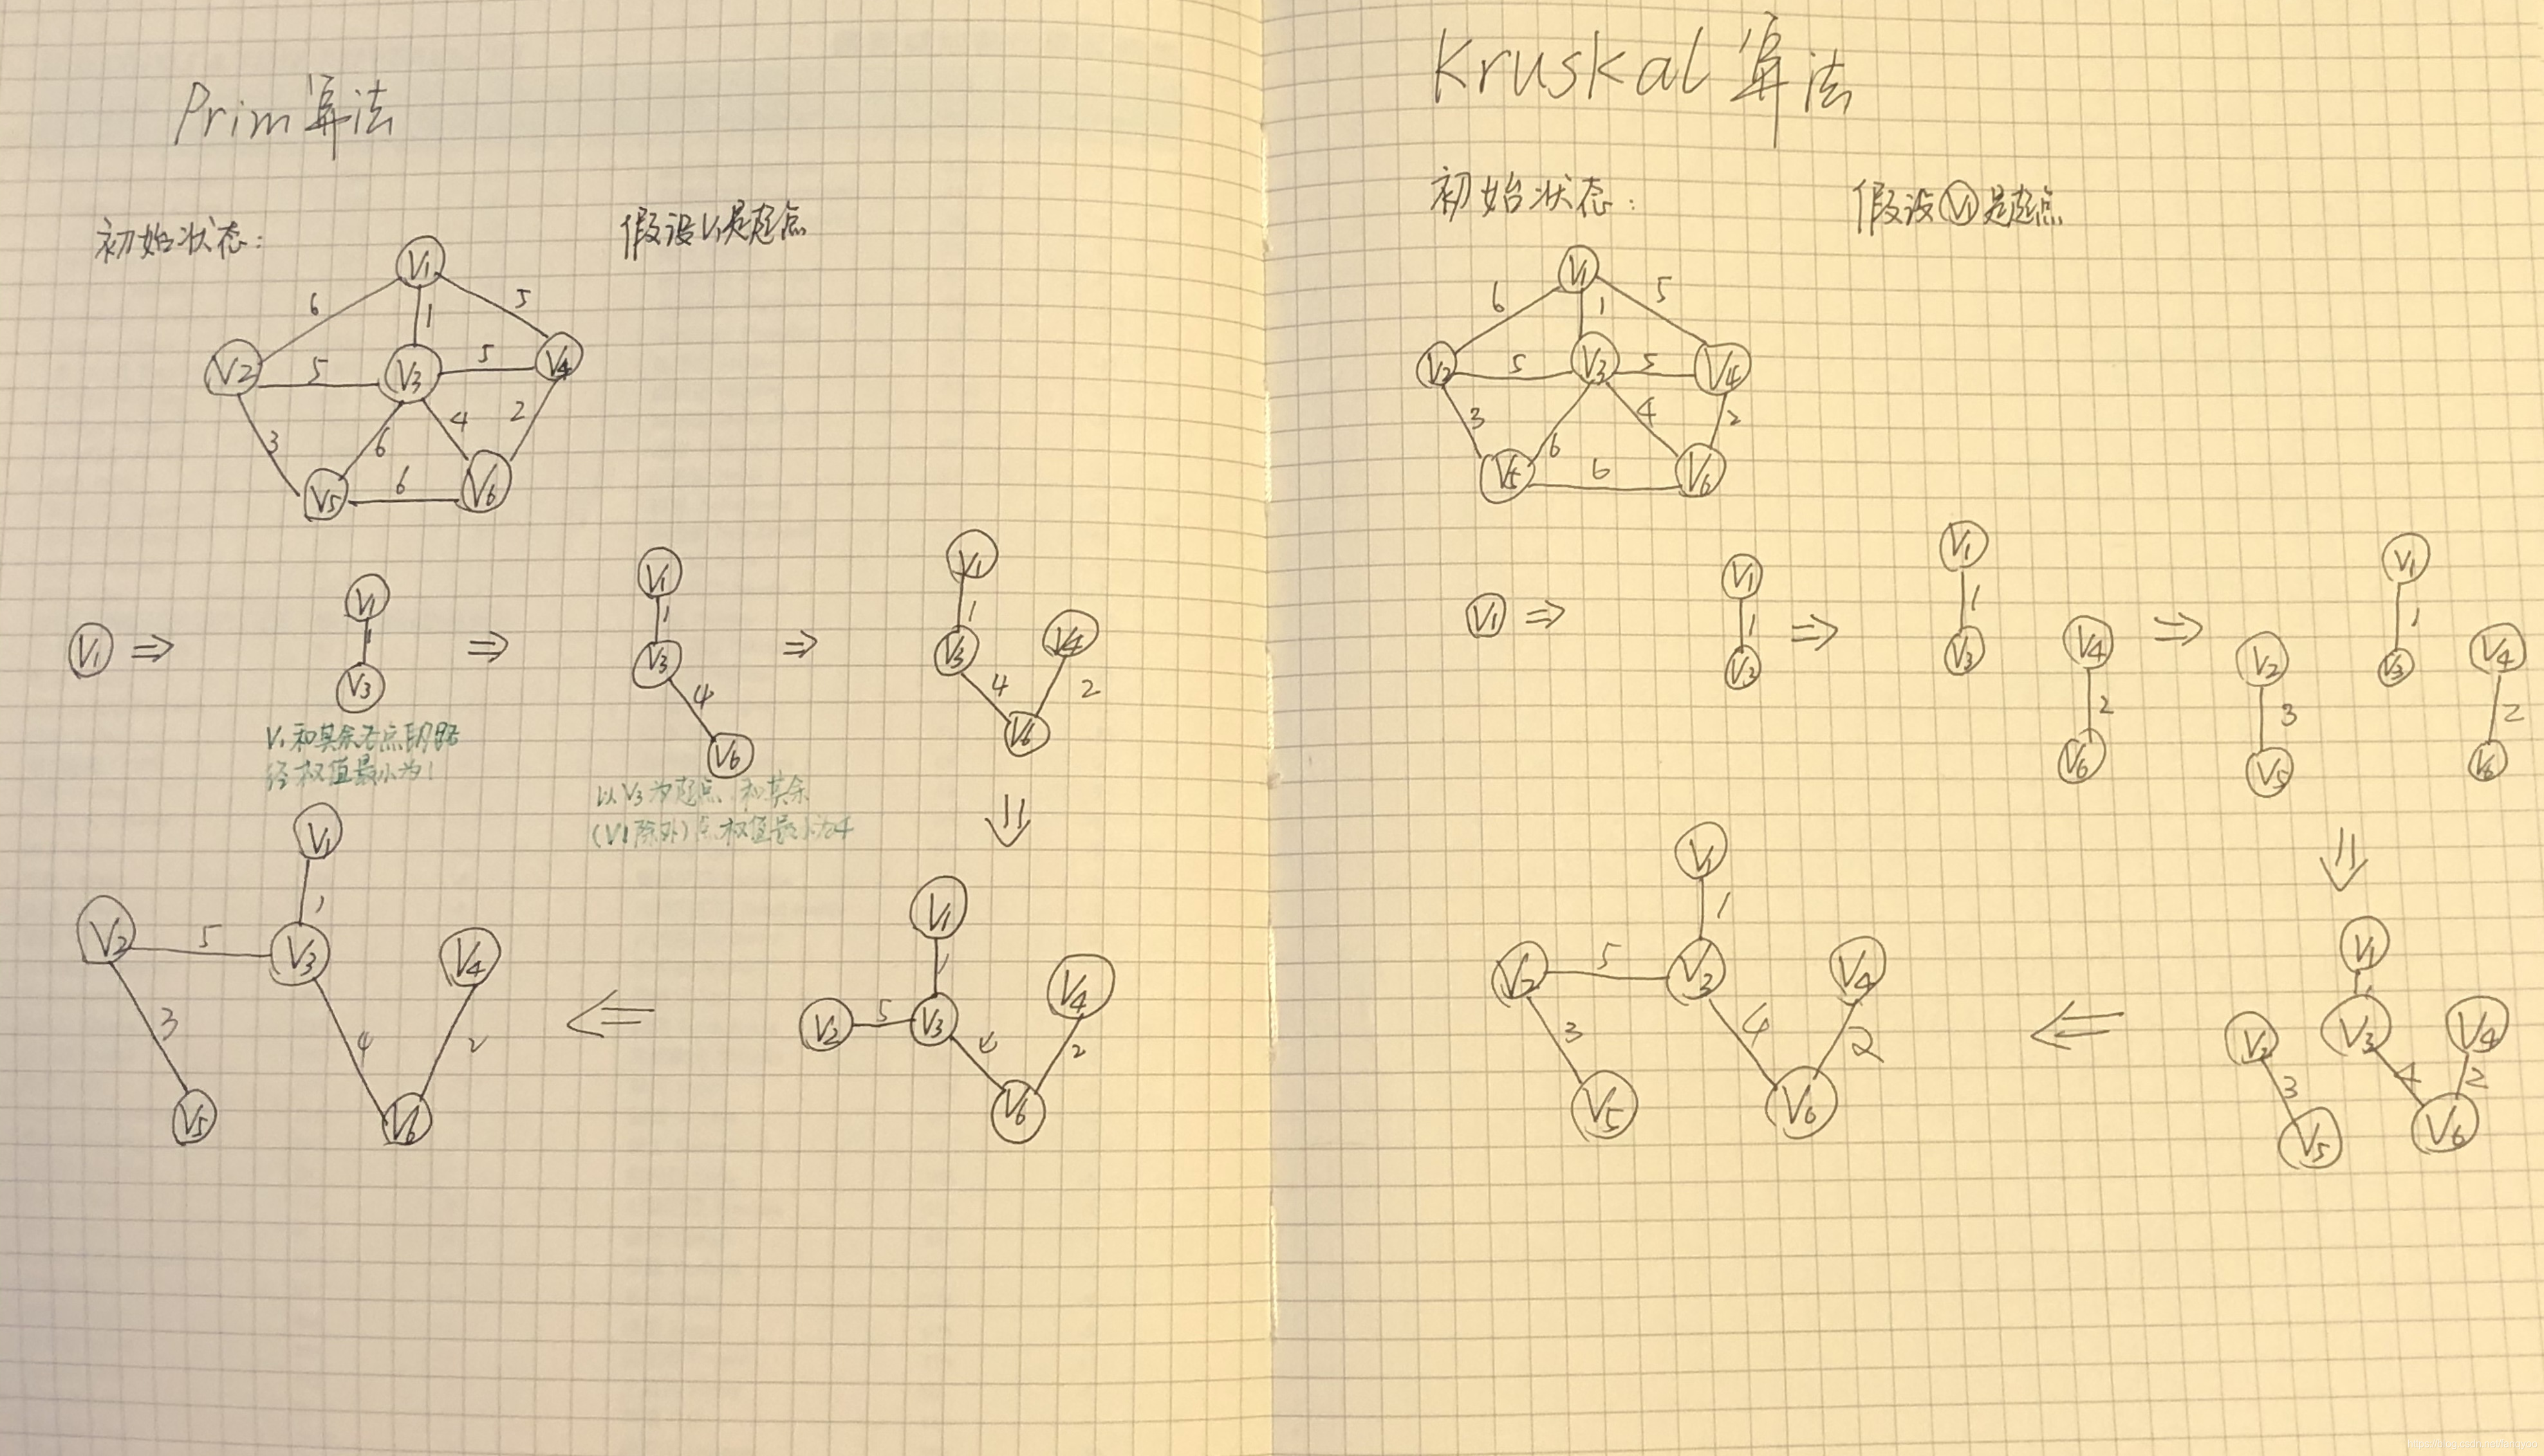 Prim算法
初始状态:
假设V1是起点
V1
6
1
5
V2
5
V3
5
V4
3
6
4
2
V5
6
V6
V1
V1
1
V3
V1和其余各点的路
径权值最小为1
V1
1
V3
4
V6
以V3为起点,和其余
(V1除外)点权值最小为4
V1
1
V3
4
V6
2
V4
V1
1
V2
5
V3
4
V6
2
V4
V1
1
V2
5
V3
V4
3
4
2
V5
V6
Kruskal算法
初始状态:
假设V1是起点
V1
6
1
5
V2
5
V3
5
V4
3
6
4
2
V5
6
V6
V1
V1
1
V3
V1
1
V3
V4
2
V6
V1
1
V3
V2
3
V5
V4
2
V6
V1
1
V3
V4
V2
3
4
2
V5
V6
V1
1
V2
5
V3
V4
3
4
2
V5
V6